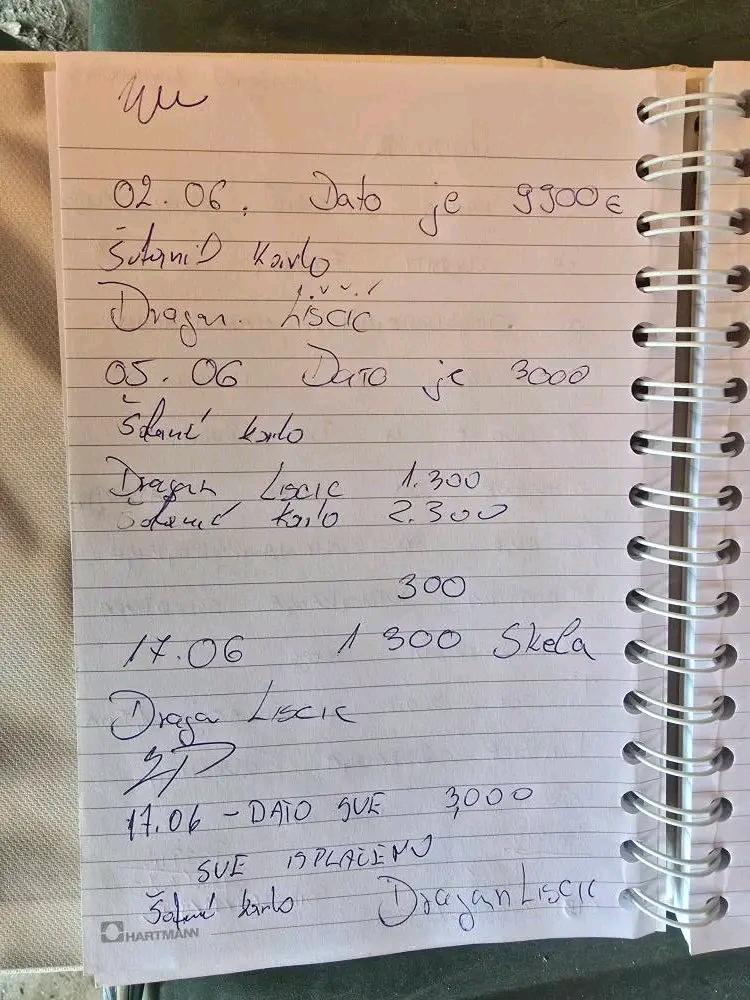 02.06. Dato je 9900€
Karlo
Dragan Liščić
05.06 Dato je 3000
Karlo
Dragan Liscic 1.300
Karlo 2.300
300
17.06 1 300 Skela
Dragan Liscic
17.06 - DATO SVE 3,000
SVE ISPLAĆENO
Karlo Dragan Liscic
HARTMANN